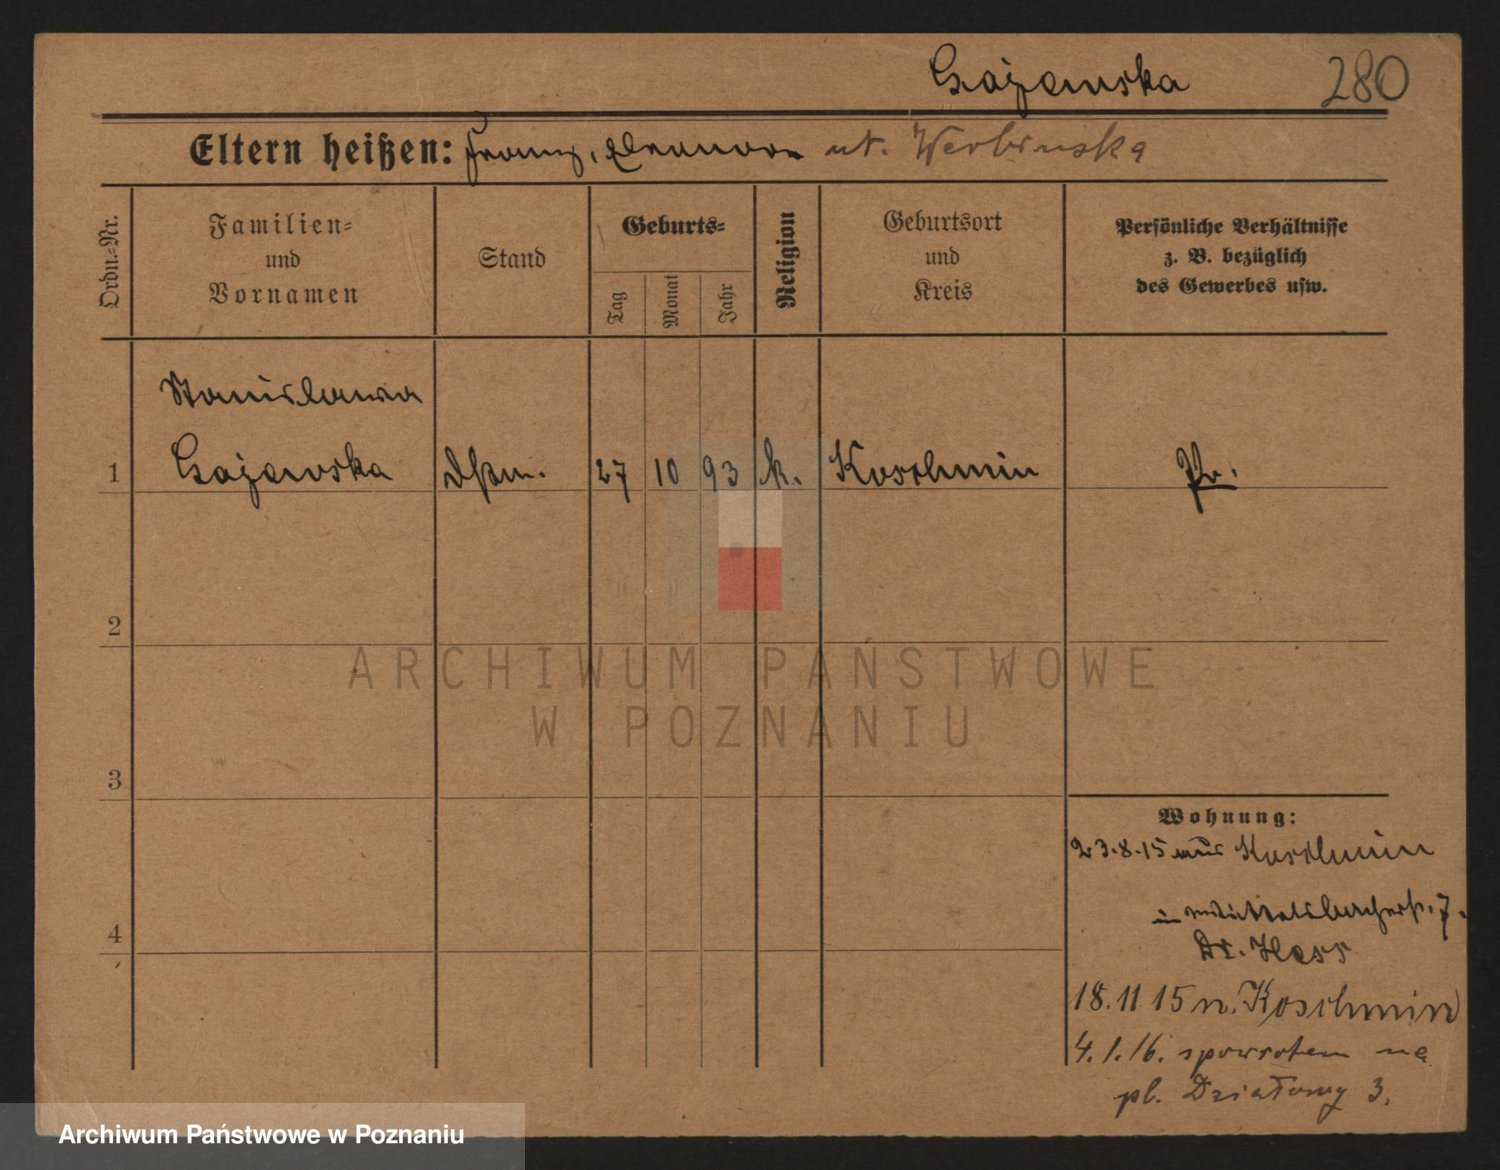 Gajewska 280
Eltern heißen: Franz, Eleonora ut. Werbinska
Ordn.-Nr.
Familien-
und
Vornamen
Stand
Geburts-
Tag
Monat
Jahr
Religion
Geburtsort
und
Kreis
Persönliche Verhältnisse
z. B. bezüglich
des Gewerbes usw.
Stanislawa
1 Gajewska 27 10 93 k. Koschmin Pr.
2
3
4
Wohnung:
23.8.15 aus Koschmin
in Wittelsbacherst. 7.
Dr. Hess
18.11 15 n. Koschmin
4.1.16. spowrotem na
pl. Działowy 3.
ARCHIWUM PAŃSTWOWE
W POZNANIU
Archiwum Państwowe w Poznaniu